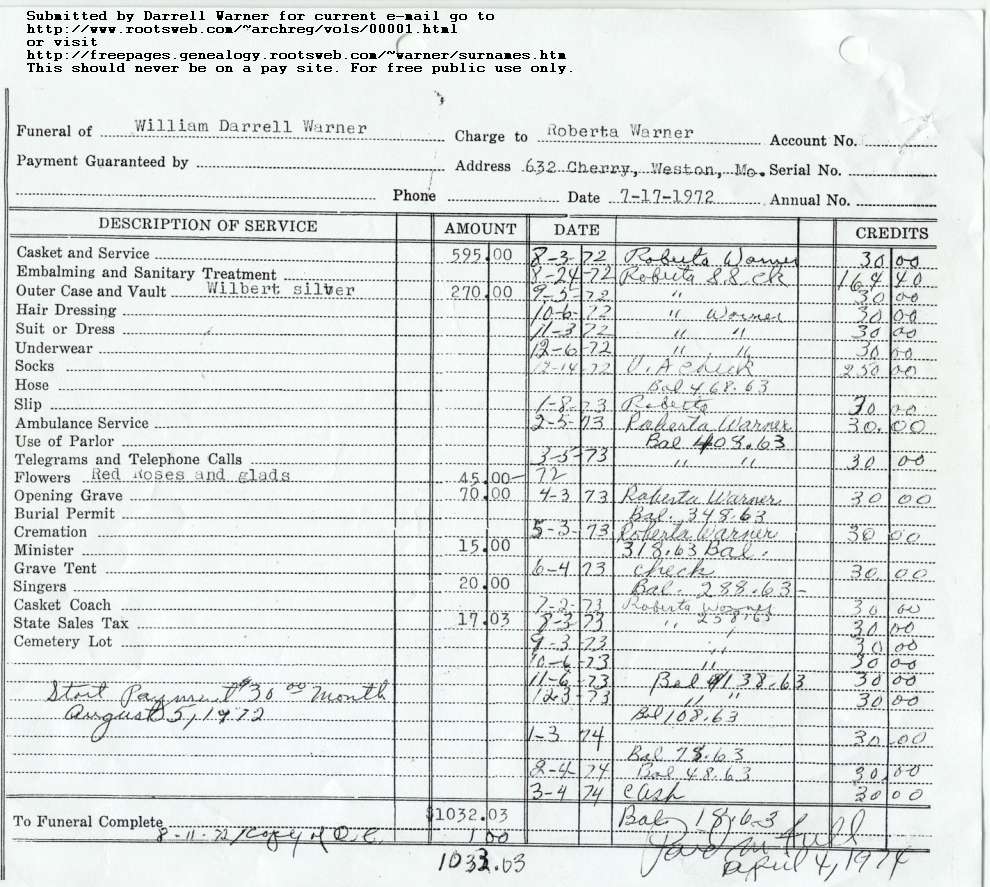 Submitted by Darrell Warner for current e-mail go to
http://www.rootsweb.com/~archreg/vols/00001.html
or visit
http://freepages.genealogy.rootsweb.com/~warner/surnames.htm
This should never be on a pay site. For free public use only.
Funeral of William Darrell Warner Charge to Roberta Warner Account No.
Payment Guaranteed by Address 632 Cherry, Weston, Mo. Serial No.
Phone Date 7-17-1972 Annual No.
DESCRIPTION OF SERVICE AMOUNT DATE CREDITS
Casket and Service 595.00 8-3-72 Roberta Warner 30 00
Embalming and Sanitary Treatment 8-24-72 Roberta S.S. ck 164 40
Outer Case and Vault Wilbert silver 270.00 9-5-72 " 30 00
Hair Dressing 10-6-72 " Warner 30 00
Suit or Dress 11-3-72 " " 30 00
Underwear 12-6-72 " " 30 00
Socks 12-14-72 V. A check 250 00
Hose Bal 468.63
Slip 1-8-73 Roberta 30 00
Ambulance Service 2-5-73 Roberta Warner 30.00
Use of Parlor Bal 408.63
Telegrams and Telephone Calls 3-5-73 " " 30 00
Flowers Red Roses and glads 45.00 72
Opening Grave 70.00 4-3 73 Roberta Warner 30 00
Burial Permit Bal. 348.63
Cremation 5-3-73 Roberta Warner 30 00
Minister 15.00 318.63 Bal.
Grave Tent 6-4 73 check 30.00
Singers 20.00 Bal. 288.63-
Casket Coach 7-2-73 Roberta Warner 30 00
State Sales Tax 17.03 8-3-73 " 258.63 30 00
Cemetery Lot 9-3-73 " 30 00
10-6-73 " 30 00
11-6-73 Bal 138.63 30 00
Start Payment $30 00 Month 12-3-73 " " 30 00
August 5, 1972 Bal 108.63
1-3 74 30.00
Bal 78.63
2-4-74 Bal 48.63 30.00
3-4 74 Cash 30 00
To Funeral Complete $1032.03 Bal 18.63
8-11-72 Copy of D.C. 1 00 Paid in full
1033.03 April 4, 1974